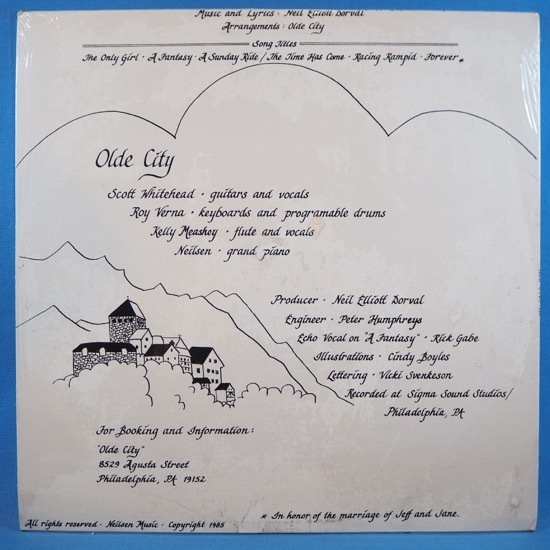 Music and Lyrics · Neil Elliott Dorval
Arrangements: Olde City
Song Titles
The Only Girl · A Fantasy · A Sunday Ride / The Time Has Come · Racing Rampid · Forever *
Olde City
Scott Whitehead · guitars and vocals
Roy Verna · keyboards and programable drums
Kelly Meashey · flute and vocals
Neilsen · grand piano
Producer · Neil Elliott Dorval
Engineer · Peter Humphreys
Echo Vocal on "A Fantasy" · Rick Gabe
Illustrations · Cindy Boyles
Lettering · Vicki Svenkeson
Recorded at Sigma Sound Studios/
Philadelphia, PA
For Booking and Information:
"Olde City"
8529 Agusta Street
Philadelphia, PA 19152
* In honor of the marriage of Jeff and Jane.
All rights reserved · Neilsen Music · Copyright 1985